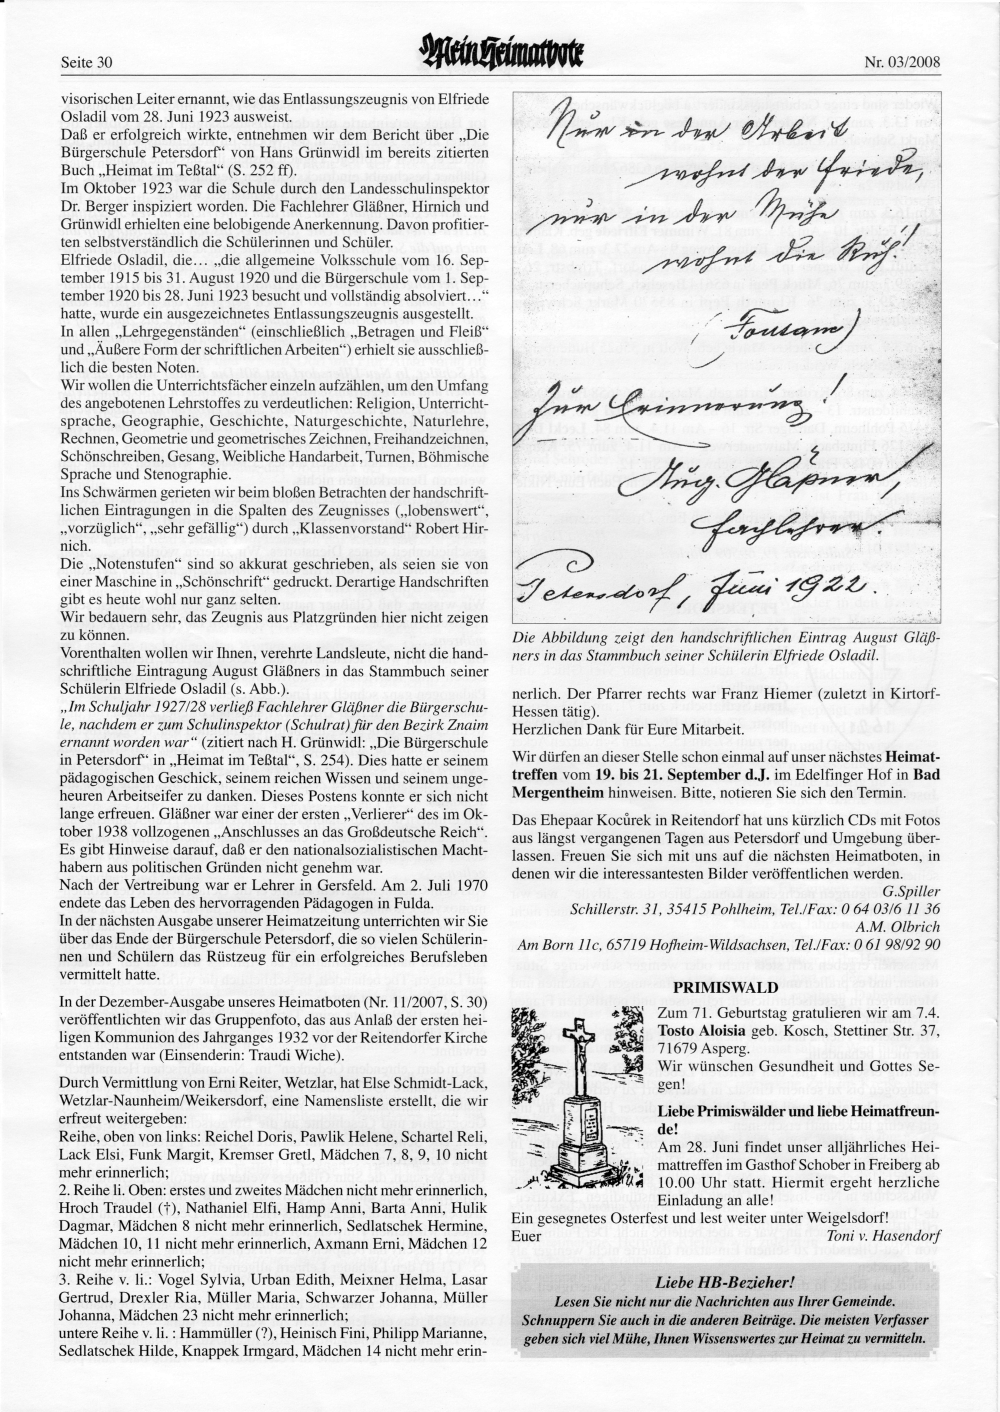 Seite 30
Mein Heimatbote
Nr. 03/2008
visorischen Leiter ernannt, wie das Entlassungszeugnis von Elfriede
Osladil vom 28. Juni 1923 ausweist.
Daß er erfolgreich wirkte, entnehmen wir dem Bericht über „Die
Bürgerschule Petersdorf“ von Hans Grünwidl im bereits zitierten
Buch „Heimat im Teßtal“ (S. 252 ff).
Im Oktober 1923 war die Schule durch den Landesschulinspektor
Dr. Berger inspiziert worden. Die Fachlehrer Gläßner, Hirnich und
Grünwidl erhielten eine belobigende Anerkennung. Davon profitier-
ten selbstverständlich die Schülerinnen und Schüler.
Elfriede Osladil, die… „die allgemeine Volksschule vom 16. Sep-
tember 1915 bis 31. August 1920 und die Bürgerschule vom 1. Sep-
tember 1920 bis 28. Juni 1923 besucht und vollständig absolviert…“
hatte, wurde ein ausgezeichnetes Entlassungszeugnis ausgestellt.
In allen „Lehrgegenständen“ (einschließlich „Betragen und Fleiß“
und „Äußere Form der schriftlichen Arbeiten“) erhielt sie ausschließ-
lich die besten Noten.
Wir wollen die Unterrichtsfächer einzeln aufzählen, um den Umfang
des angebotenen Lehrstoffes zu verdeutlichen: Religion, Unterricht-
sprache, Geographie, Geschichte, Naturgeschichte, Naturlehre,
Rechnen, Geometrie und geometrisches Zeichnen, Freihandzeichnen,
Schönschreiben, Gesang, Weibliche Handarbeit, Turnen, Böhmische
Sprache und Stenographie.
Ins Schwärmen gerieten wir beim bloßen Betrachten der handschrift-
lichen Eintragungen in die Spalten des Zeugnisses („lobenswert“,
„vorzüglich“, „sehr gefällig“) durch „Klassenvorstand“ Robert Hir-
nich.
Die „Notenstufen“ sind so akkurat geschrieben, als seien sie von
einer Maschine in „Schönschrift“ gedruckt. Derartige Handschriften
gibt es heute wohl nur ganz selten.
Wir bedauern sehr, das Zeugnis aus Platzgründen hier nicht zeigen
zu können.
Vorenthalten wollen wir Ihnen, verehrte Landsleute, nicht die hand-
schriftliche Eintragung August Gläßners in das Stammbuch seiner
Schülerin Elfriede Osladil (s. Abb.).
„Im Schuljahr 1927/28 verließ Fachlehrer Gläßner die Bürgerschu-
le, nachdem er zum Schulinspektor (Schulrat) für den Bezirk Znaim
ernannt worden war“ (zitiert nach H. Grünwidl: „Die Bürgerschule
in Petersdorf“ in „Heimat im Teßtal“, S. 254). Dies hatte er seinem
pädagogischen Geschick, seinem reichen Wissen und seinem unge-
heuren Arbeitseifer zu danken. Dieses Postens konnte er sich nicht
lange erfreuen. Gläßner war einer der ersten „Verlierer“ des im Ok-
tober 1938 vollzogenen „Anschlusses an das Großdeutsche Reich“.
Es gibt Hinweise darauf, daß er den nationalsozialistischen Macht-
habern aus politischen Gründen nicht genehm war.
Nach der Vertreibung war er Lehrer in Gersfeld. Am 2. Juli 1970
endete das Leben des hervorragenden Pädagogen in Fulda.
In der nächsten Ausgabe unserer Heimatzeitung unterrichten wir Sie
über das Ende der Bürgerschule Petersdorf, die so vielen Schülerin-
nen und Schülern das Rüstzeug für ein erfolgreiches Berufsleben
vermittelt hatte.
In der Dezember-Ausgabe unseres Heimatboten (Nr. 11/2007, S. 30)
veröffentlichten wir das Gruppenfoto, das aus Anlaß der ersten hei-
ligen Kommunion des Jahrganges 1932 vor der Reitendorfer Kirche
entstanden war (Einsenderin: Traudi Wiche).
Durch Vermittlung von Erni Reiter, Wetzlar, hat Else Schmidt-Lack,
Wetzlar-Naunheim/Weikersdorf, eine Namensliste erstellt, die wir
erfreut weitergeben:
Reihe, oben von links: Reichel Doris, Pawlik Helene, Schartel Reli,
Lack Elsi, Funk Margit, Kremser Gretl, Mädchen 7, 8, 9, 10 nicht
mehr erinnerlich;
2. Reihe li. Oben: erstes und zweites Mädchen nicht mehr erinnerlich,
Hroch Traudel (†), Nathaniel Elfi, Hamp Anni, Barta Anni, Hulik
Dagmar, Mädchen 8 nicht mehr erinnerlich, Sedlatschek Hermine,
Mädchen 10, 11 nicht mehr erinnerlich, Axmann Erni, Mädchen 12
nicht mehr erinnerlich;
3. Reihe v. li.: Vogel Sylvia, Urban Edith, Meixner Helma, Lasar
Gertrud, Drexler Ria, Müller Maria, Schwarzer Johanna, Müller
Johanna, Mädchen 23 nicht mehr erinnerlich;
untere Reihe v. li. : Hammüller (?), Heinisch Fini, Philipp Marianne,
Sedlatschek Hilde, Knappek Irmgard, Mädchen 14 nicht mehr erin-
Nur in der Arbeit
wohnt der Friede,
nur in der Mühe
wohnt die Ruh!
(Fontane)
Zur Erinnerung!
Aug. Gläßner,
Fachlehrer.
Petersdorf, Juni 1922.
Die Abbildung zeigt den handschriftlichen Eintrag August Gläß-
ners in das Stammbuch seiner Schülerin Elfriede Osladil.
nerlich. Der Pfarrer rechts war Franz Hiemer (zuletzt in Kirtorf-
Hessen tätig).
Herzlichen Dank für Eure Mitarbeit.
Wir dürfen an dieser Stelle schon einmal auf unser nächstes Heimat-
treffen vom 19. bis 21. September d.J. im Edelfinger Hof in Bad
Mergentheim hinweisen. Bitte, notieren Sie sich den Termin.
Das Ehepaar Kocůrek in Reitendorf hat uns kürzlich CDs mit Fotos
aus längst vergangenen Tagen aus Petersdorf und Umgebung über-
lassen. Freuen Sie sich mit uns auf die nächsten Heimatboten, in
denen wir die interessantesten Bilder veröffentlichen werden.
G.Spiller
Schillerstr. 31, 35415 Pohlheim, Tel./Fax: 0 64 03/6 11 36
A.M. Olbrich
Am Born 11c, 65719 Hofheim-Wildsachsen, Tel./Fax: 0 61 98/92 90
PRIMISWALD
Zum 71. Geburtstag gratulieren wir am 7.4.
Tosto Aloisia geb. Kosch, Stettiner Str. 37,
71679 Asperg.
Wir wünschen Gesundheit und Gottes Se-
gen!
Liebe Primiswälder und liebe Heimatfreun-
de!
Am 28. Juni findet unser alljährliches Hei-
mattreffen im Gasthof Schober in Freiberg ab
10.00 Uhr statt. Hiermit ergeht herzliche
Einladung an alle!
Ein gesegnetes Osterfest und lest weiter unter Weigelsdorf!
Euer Toni v. Hasendorf
Liebe HB-Bezieher!
Lesen Sie nicht nur die Nachrichten aus Ihrer Gemeinde.
Schnuppern Sie auch in die anderen Beiträge. Die meisten Verfasser
geben sich viel Mühe, Ihnen Wissenswertes zur Heimat zu vermitteln.